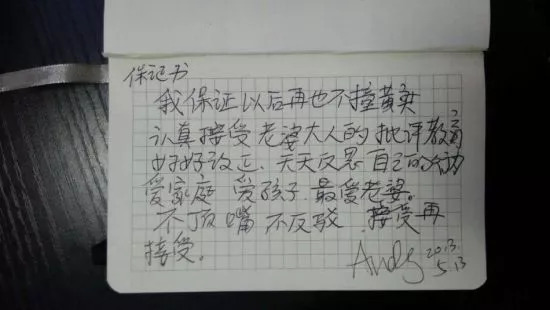 保证书
我保证以后再也不撞黄奕
认真接受老婆大人的批评教育
好好改正. 天天反思自己的
爱家庭 爱孩子. 最爱老婆。
不顶嘴 不反驳 接受再
接受。
Andy 2013
5.13